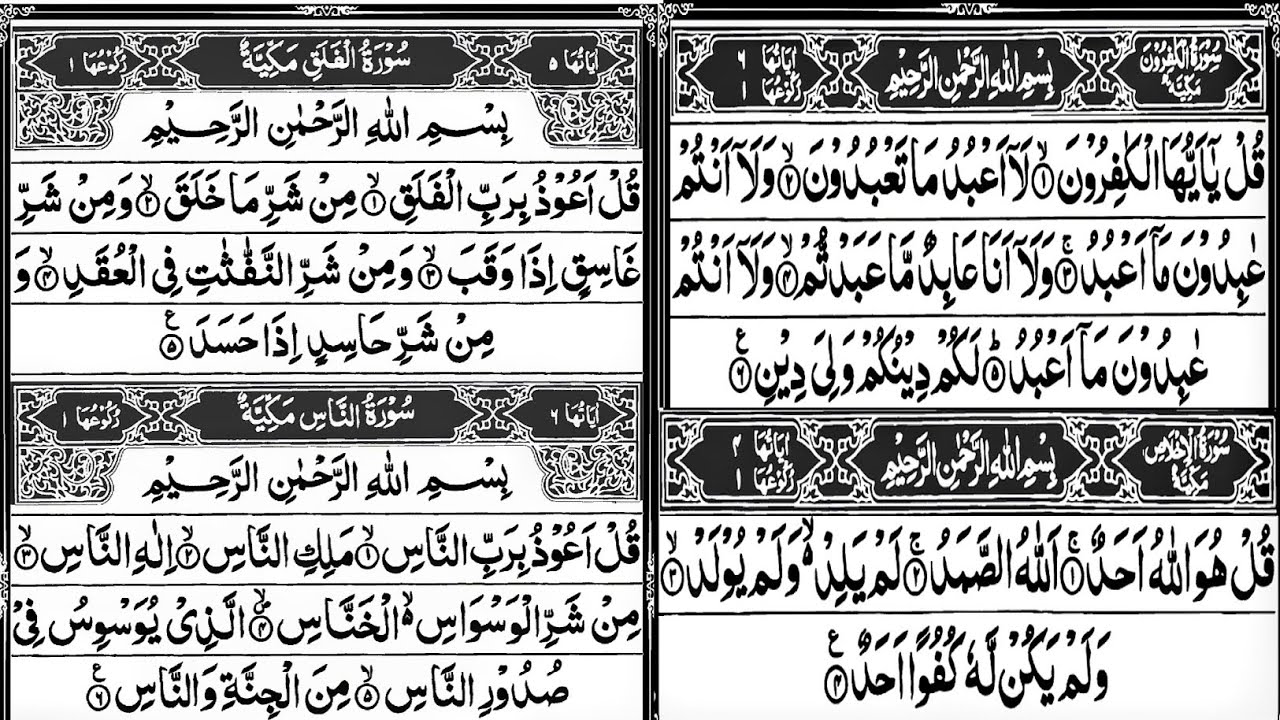 سُوْرَةُ الْكٰفِرُوْنَ مَكِّيَّةٌ
بِسْمِ اللهِ الرَّحْمٰنِ الرَّحِيْمِ
اٰيَاتُهَا ٦
رُكُوْعُهَا ١
قُلْ يٰٓاَيُّهَا الْكٰفِرُوْنَ ۙ﴿١﴾ لَآ اَعْبُدُ مَا تَعْبُدُوْنَ ۙ﴿٢﴾ وَلَآ اَنْتُمْ
عٰبِدُوْنَ مَآ اَعْبُدُ ۚ﴿٣﴾ وَلَآ اَنَا عَابِدٌ مَّا عَبَدْتُّمْ ۙ﴿٤﴾ وَلَآ اَنْتُمْ
عٰبِدُوْنَ مَآ اَعْبُدُ ؕ﴿٥﴾ لَكُمْ دِيْنُكُمْ وَلِيَ دِيْنِ ﴿٦﴾ ع
سُوْرَةُ الْاِخْلَاصِ مَكِّيَّةٌ
بِسْمِ اللهِ الرَّحْمٰنِ الرَّحِيْمِ
اٰيَاتُهَا ٤
رُكُوْعُهَا ١
قُلْ هُوَ اللهُ اَحَدٌ ۚ﴿١﴾ اَللهُ الصَّمَدُ ۚ﴿٢﴾ لَمْ يَلِدْ ۙ۬ وَلَمْ يُوْلَدْ ۙ﴿٣﴾
وَلَمْ يَكُنْ لَّهٗ كُفُوًا اَحَدٌ ﴿٤﴾ ع
اٰيَاتُهَا ٥
سُوْرَةُ الْفَلَقِ مَكِّيَّةٌ
رُكُوْعُهَا ١
بِسْمِ اللهِ الرَّحْمٰنِ الرَّحِيْمِ
قُلْ اَعُوْذُ بِرَبِّ الْفَلَقِ ۙ﴿١﴾ مِنْ شَرِّ مَا خَلَقَ ۙ﴿٢﴾ وَمِنْ شَرِّ
غَاسِقٍ اِذَا وَقَبَ ۙ﴿٣﴾ وَمِنْ شَرِّ النَّفّٰثٰتِ فِي الْعُقَدِ ۙ﴿٤﴾ وَ
مِنْ شَرِّ حَاسِدٍ اِذَا حَسَدَ ﴿٥﴾ ع
اٰيَاتُهَا ٦
سُوْرَةُ النَّاسِ مَكِّيَّةٌ
رُكُوْعُهَا ١
بِسْمِ اللهِ الرَّحْمٰنِ الرَّحِيْمِ
قُلْ اَعُوْذُ بِرَبِّ النَّاسِ ۙ﴿١﴾ مَلِكِ النَّاسِ ۙ﴿٢﴾ اِلٰهِ النَّاسِ ۙ﴿٣﴾
مِنْ شَرِّ الْوَسْوَاسِ ۙ۬ الْخَنَّاسِ ۙ﴿٤﴾ الَّذِيْ يُوَسْوِسُ فِيْ
صُدُوْرِ النَّاسِ ۙ﴿٥﴾ مِنَ الْجِنَّةِ وَالنَّاسِ ﴿٦﴾ ع